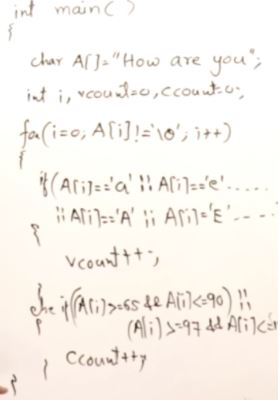 int main()
{
char A[]="How are you";
int i, vcount=0, ccount=0;
for(i=0; A[i]!='\0'; i++)
{
if(A[i]=='a' || A[i]=='e'.....
|| A[i]=='A' || A[i]='E'....
{
vcount++;
}
else if((A[i]>=65 && A[i]<=90) ||
(A[i]>=97 && A[i]<=
{
ccount++;
}
}